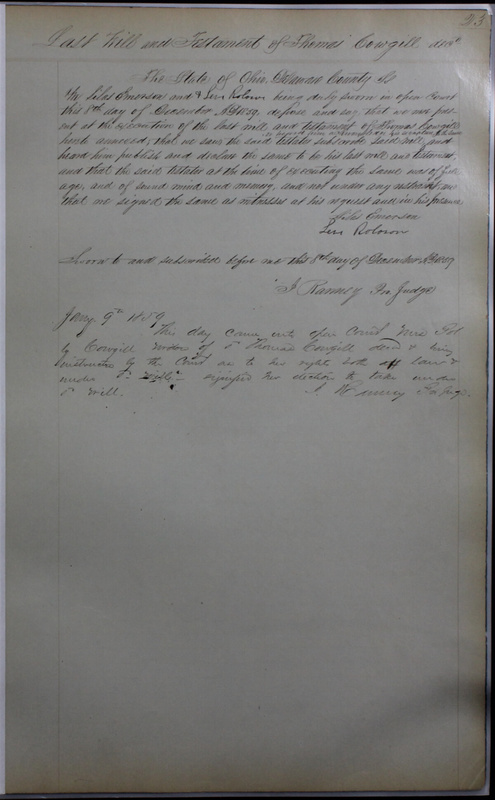 23
Last Will and Testament of Thomas Cowgill decd
The State of Ohio, Delaware County Ss
We Silas Emerson and Levi Rolosen being duly sworn in open Court
this 8th day of December AD 1859, depose and say that we were pres-
ent at the execution of the last will and testament of Thomas Cowgill
hereto annexed, that we saw the said testator subscribe said will, and
heard him publish and declare the same to be his last will and testament,
and that the said testator at the time of executing the same was of full
age, and of sound mind and memory, and not under any restraint and
that we signed the same as witnesses at his request and in his presence
Silas Emerson
Levi Rolosen
Sworn to and subscribed before me this 8th day of December AD 1859
J Ranney Pro Judge
Jany 9th 1859
This day came into open Court Mrs
Cowgill widow of Thomas Cowgill decd & being
instructed by the Court as to her rights both of law &
under signified her election to take under
Will. J Ranney Pro Judge